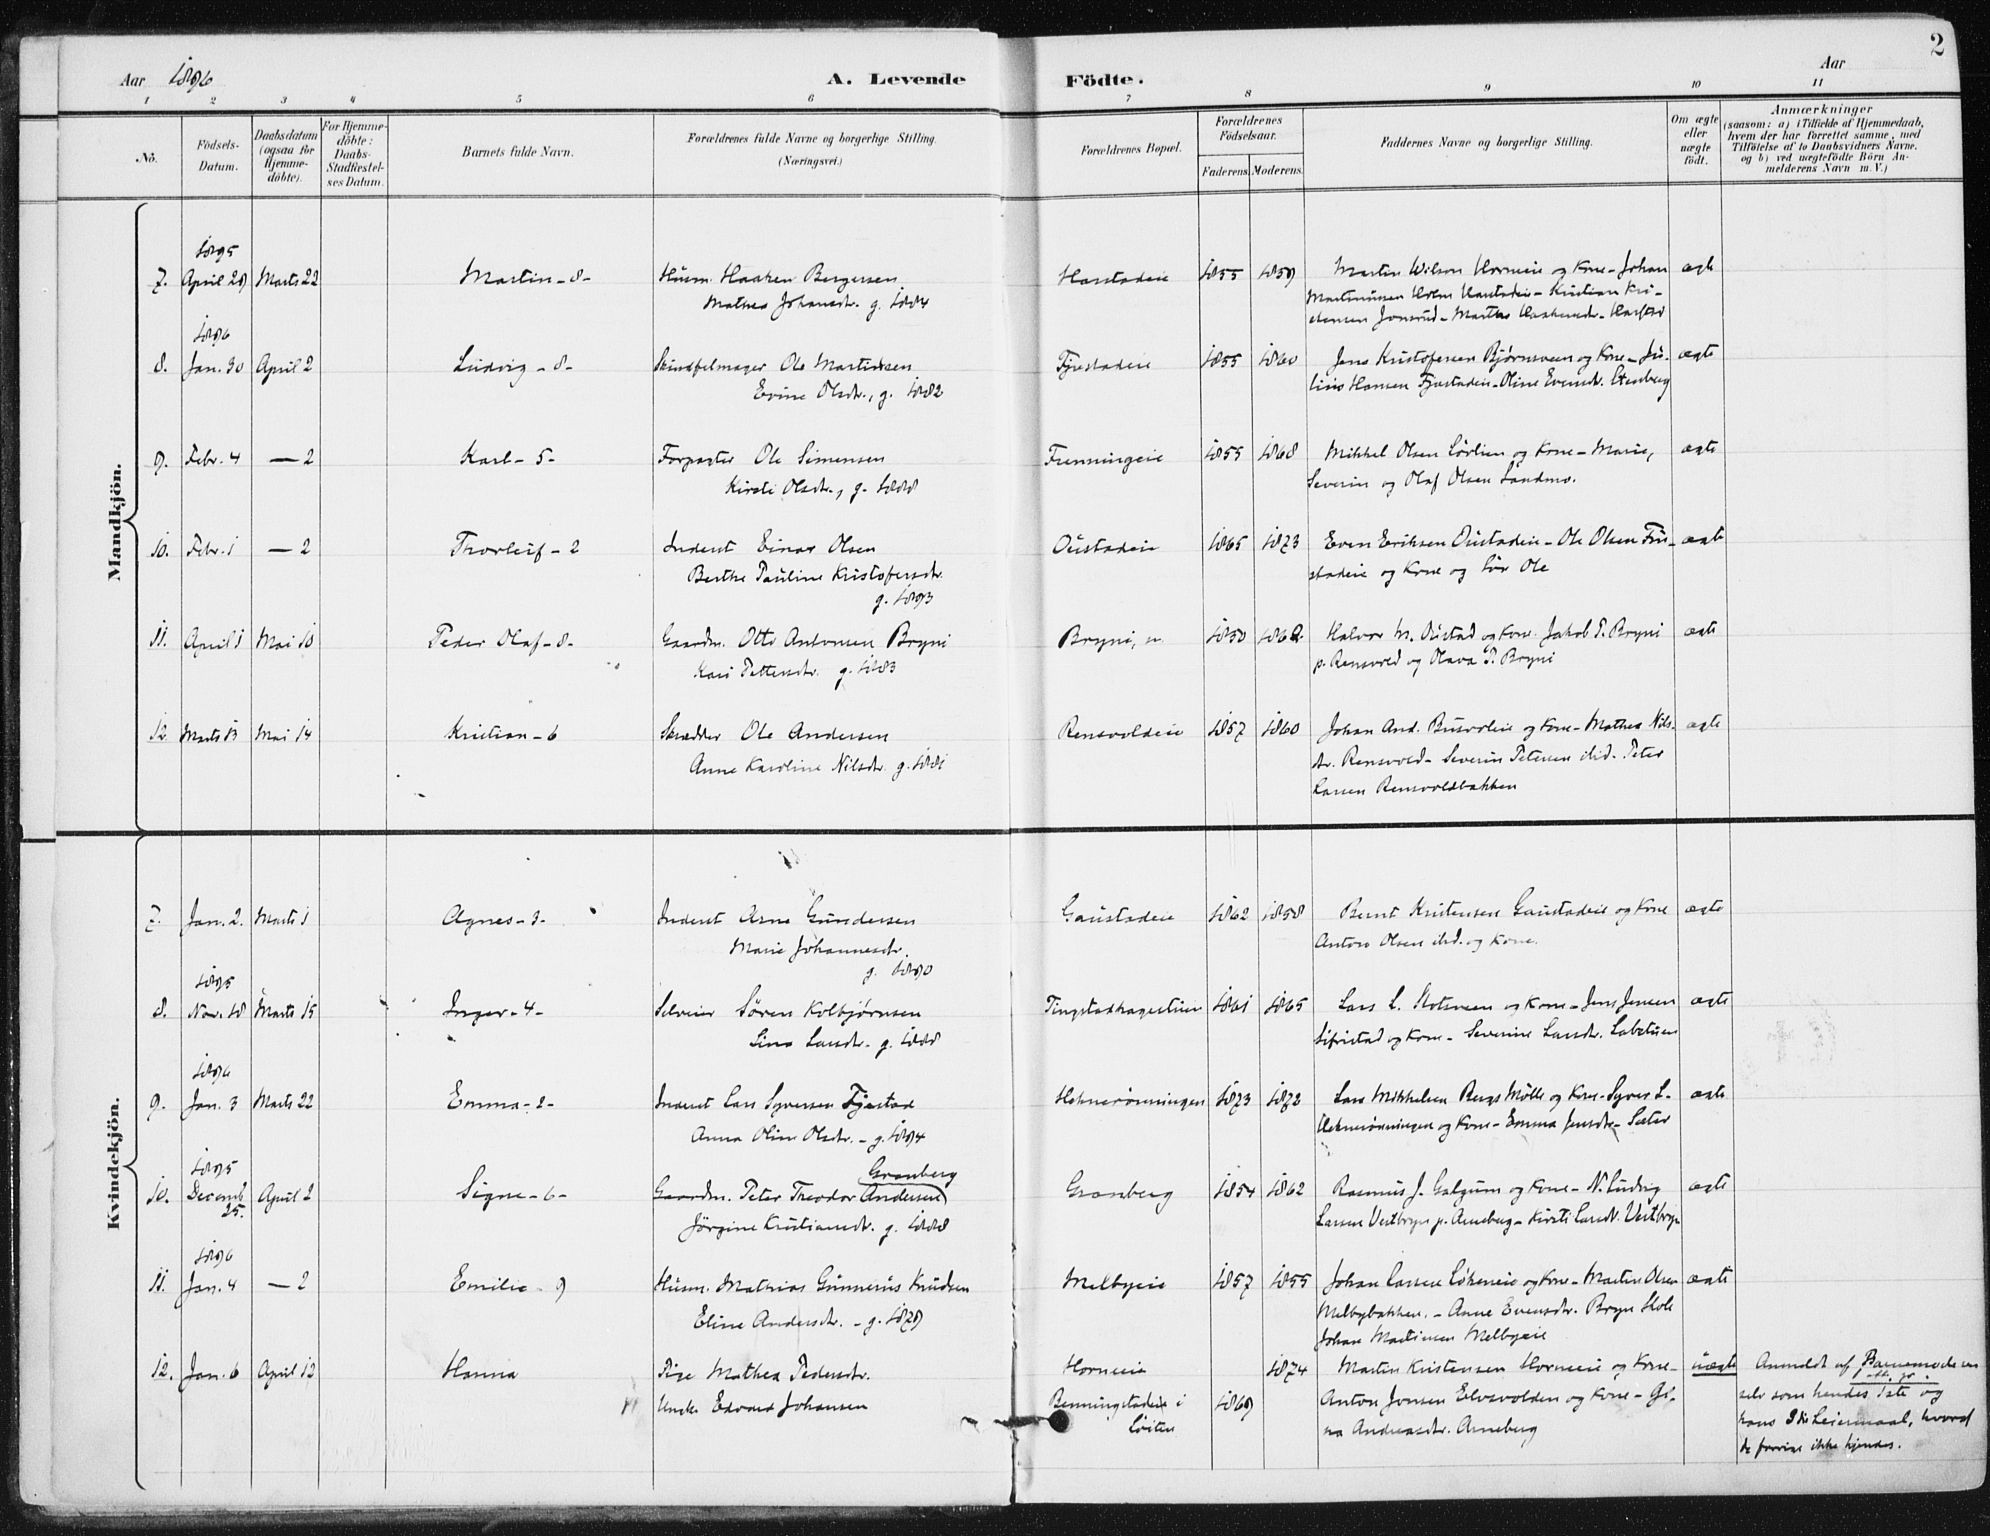 2
Aar 1896 A. Levende Födte. Aar
1 2 3 4 5 6 7 8 9 10 11
Nô. Födsels-Datum. Daabsdatum (ogsaa for Hjemme-döbte). For Hjemme-döbte: Daabs-Stadfæstel-ses Datum. Barnets fulde Navn. Forældrenes fulde Navne og borgerlige Stilling. (Næringsvei.) Forældrenes Bopæl. Forældrenes Födselsaar. Faderens. Moderens. Faddernes Navne og borgerlige Stilling. Om ægte eller uægte födt. Anmærkninger (saasom: a) i Tilfælde af Hjemmedaab, hvem der har forrettet samme, med Tilföielse af to Daabsvidners Navne, og b) ved uægtefödte Börn Anmelderens Navn m.V.)
Mandkjön.
1895
7. April 29 Marts 22 Martin - 8 - Husm. Haaken Bergersen Harstadeie 1855 1859 Martin Wilson Horneie og Kone - Johan ægte
Mathea Johansdr. g. 1884 Martinussen Holm Harstadeie - Kristian Kri-
stensen Jonsrud - Marthe Haakensdr. Harstad
1896
8. Jan. 30 April 2 Ludvig - 8 - Skindfelmager Ole Martinsen Fjestadeie 1855 1860 Jens Kristofersen Bjørnsveen og Kone - Ju- ægte
Evine Olsdr., g. 1882 lius Hansen Fjestadeie - Oline Evensdr. Stenberg
9. Febr. 4 — 2 Karl - 5 - Forpagter Ole Simensen Frenningeie 1855 1868 Mikkel Olsen Lørlien og Kone - Marie, ægte
Kirsti Olsdr., g. 1888 Severin og Olaf Olsen Sandmo.
10. Febr. 1 — 2 Thorleif - 2 Inderst Einar Olsen Oustadeie 1865 1873 Even Eriksen Oustadeie - Ole Olsen Fru- ægte
Berthe Pauline Kristofersdr. stadeie og Kone og Siv Ole
g. 1893
11. April 1 Mai 10 Peder Olaf - 8 - Gaardm. Otto Antonsen Bryni Bryni, n. 1850 1862 Halvor M. Oustad og Kone. Jakob P. Bryni ægte
Kari Pettersdr. g. 1883 p. Rensvold og Olava P. Bryni
12. Marts 13 Mai 14 Kristian - 6 Skrædder Ole Andersen Rensvoldeie 1857 1860 Johan And. Busvoleie og Kone - Mathea Nils- ægte
Anne Karoline Nilsdr. g. 1881 dr. Rensvold - Severin Petersen ibid. Peter
Larsen Rensvoldbakken
Kvindekjön.
7. Jan. 2. Marts 1 Agnes - 3 - Inderst Arne Gundersen Gaustadeie 1862 1858 Bernt Kristensen Gaustadeie og Kone ægte
Marie Johannesdr. Anton Olsen ibid. og Kone.
g. 1890
1895
8. Nov. 18 Marts 15 Inger - 4 - Selveier Søren Kolbjørnsen Tingstadhagestuen 1861 1865 Lars L. Stotsveen og Kone - Jens Jensen ægte
Sina Larsdr. g. 1888 Sifristad og Kone - Severine Larsdr. Labetuen
1896
9. Jan. 3 Marts 22 Emma - 2 - Inderst Lars Syversen Fjestad Heknerønningen 1873 1872 Lars Mikkelsen Bergs Mølle og Kone - Syver L. ægte
Anna Oline Olsdr. - g. 1894 Heknerønningen og Kone - Emma Jensdr. Sæter
1895
10. Decemb. 25. April 2 Signe - 6 - Gaardm. Peter Theodor Andersen Granberg Granberg 1854 1862 Rasmus J. Galgum og Kone - N. Ludvig ægte
Jörgine Kristiansdr. g. 1888 Larsen Vestbryn p. Arneberg - Kirsti Larsdr. Vestbryn
1896
11. Jan. 4 — 2 Emilie - 9 Husm. Mathias Gunnerius Knudsen Melbyeie 1857 1855 Johan Larsen Løkeneie og Kone - Martin Olsen ægte
Eline Andersdr. - g. 1879 Melbybakken. - Anne Evensdr. Bryn Skole
Johan Martinsen Melbyeie
12. Jan. 6 April 12 Hanna Pige Mathea Pedersdr. Horneie 1874 Martin Kristensen Horneie og Kone - uægte Anmeldt af Barnemoderen
Ungk. Edvard Johansen Benningstadeie i 1869 Anton Jonsen Elvsvolden og Kone - Gi- selv som hendes 1ste og
Løiten na Andreasdr. Arneberg hans 2det Leiermaal, hvoraf
de forrige ikke kjendes.